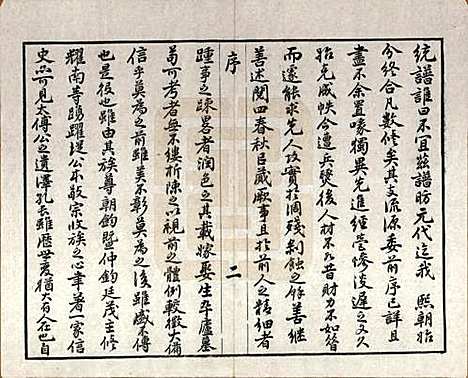 統譜誰曰不宜茲譜昉元代迄我　熙朝始
分終合凡數修矣其支流源委前序已詳且
盡不余置喙獨異先進經營慘淡遲之又久
始克成帙今遭兵燹後人材不如昔財力不如昔
而遂能求先人攻實於凋殘剝蝕之餘善繼
善述閱四春秋臣蕆厥事且於前人之精細者
序
二
踵事之疎畧者潤色之其載嫁娶生卒廬墓
苟可考者無不縷析陳之以視前之體例較徵大備
信乎莫為之前雖美不彰莫為之後雖盛不傳
也是役也雖由其族尊朝鈞暨仲鈞廷茂主修
耀南等踴躍從公本敬宗收族之心聿著一家信
史亦可見太傅公之遺澤孔長雖歷世叐猶大有人在也自